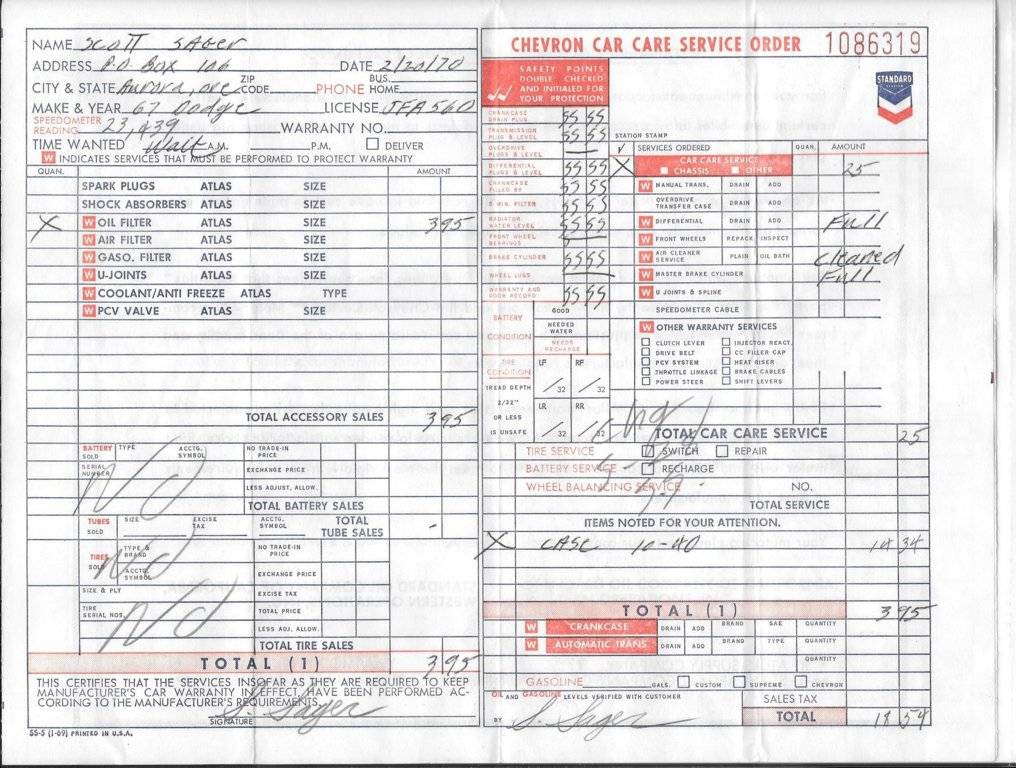 NAME Scott Sager
ADDRESS P.O. Box 106 DATE 2/20/70
CITY & STATE Aurora, ore ZIP CODE PHONE BUS. HOME
MAKE & YEAR 67 Dodge LICENSE JFA 560
SPEEDOMETER READING 23,939 WARRANTY NO.
TIME WANTED Walts A.M. P.M. DELIVER
W INDICATES SERVICES THAT MUST BE PERFORMED TO PROTECT WARRANTY
QUAN. AMOUNT
SPARK PLUGS ATLAS SIZE
SHOCK ABSORBERS ATLAS SIZE
X W OIL FILTER ATLAS SIZE 395
W AIR FILTER ATLAS SIZE
W GASO. FILTER ATLAS SIZE
W U-JOINTS ATLAS SIZE
W COOLANT/ANTI FREEZE ATLAS TYPE
W PCV VALVE ATLAS SIZE
TOTAL ACCESSORY SALES 395
BATTERY SOLD TYPE ACCTG. SYMBOL NO TRADE-IN PRICE
SERIAL NUMBER EXCHANGE PRICE
LESS ADJUST, ALLOW.
TOTAL BATTERY SALES
TUBES SOLD SIZE EXCISE TAX ACCTG. SYMBOL TOTAL TUBE SALES -
TIRES SOLD TYPE & BRAND NO TRADE-IN PRICE
ACCTG. SYMBOL EXCHANGE PRICE
SIZE & PLY EXCISE TAX
TIRE SERIAL NOS. TOTAL PRICE
LESS ADJ, ALLOW.
TOTAL TIRE SALES
TOTAL (1) 3,95
THIS CERTIFIES THAT THE SERVICES INSOFAR AS THEY ARE REQUIRED TO KEEP
MANUFACTURER'S CAR WARRANTY IN EFFECT, HAVE BEEN PERFORMED AC-
CORDING TO THE MANUFACTURER'S REQUIREMENTS.
SIGNATURE S. Sager
SS-5 (1-69) PRINTED IN U.S.A.
CHEVRON CAR CARE SERVICE ORDER 1086319
SAFETY POINTS
DOUBLE CHECKED
AND INITIALED FOR
YOUR PROTECTION
STANDARD
CRANKCASE DRAIN PLUG SS SS
TRANSMISSION PLUG & LEVEL SS SS
OVERDRIVE PLUGS & LEVEL
DIFFERENTIAL PLUGS & LEVEL SS SS
CRANKCASE FILLED BY SS SS
5 MIN. FILTER SS SS
RADIATOR WATER LEVEL SS SS
FRONT WHEEL BEARINGS
BRAKE CYLINDER SS SS
WHEEL LUGS
WARRANTY AND DOOR RECORD SS SS
BATTERY CONDITION GOOD
NEEDED WATER
NEEDS RECHARGE
TIRE CONDITION LF /32 RF /32
TREAD DEPTH 2/32" OR LESS IS UNSAFE LR /32 RR /32
STATION STAMP
SERVICES ORDERED QUAN. AMOUNT
X CAR CARE SERVICE 25
CHASSIS OTHER
W MANUAL TRANS. DRAIN ADD
OVERDRIVE TRANSFER CASE DRAIN ADD
W DIFFERENTIAL DRAIN ADD Full
W FRONT WHEELS REPACK INSPECT
W AIR CLEANER SERVICE PLAIN OIL BATH cleaned
W MASTER BRAKE CYLINDER Full
W U JOINTS & SPLINE
SPEEDOMETER CABLE
W OTHER WARRANTY SERVICES
CLUTCH LEVER INJECTOR REACT.
DRIVE BELT CC FILLER CAP
PCV SYSTEM HEAT RISER
THROTTLE LINKAGE BRAKE CABLES
POWER STEER SHIFT LEVERS
TOTAL CAR CARE SERVICE 25
TIRE SERVICE SWITCH REPAIR
BATTERY SERVICE RECHARGE
WHEEL BALANCING SERVICE NO.
TOTAL SERVICE
ITEMS NOTED FOR YOUR ATTENTION.
X CASE 10-40 14 34
TOTAL (1) 3 95
W CRANKCASE DRAIN ADD BRAND SAE QUANTITY
W AUTOMATIC TRANS. DRAIN ADD BRAND TYPE QUANTITY
QUANTITY
GASOLINE GALS. CUSTOM SUPREME CHEVRON
OIL AND GASOLINE LEVELS VERIFIED WITH CUSTOMER
SALES TAX
BY S. Sager TOTAL 18 54